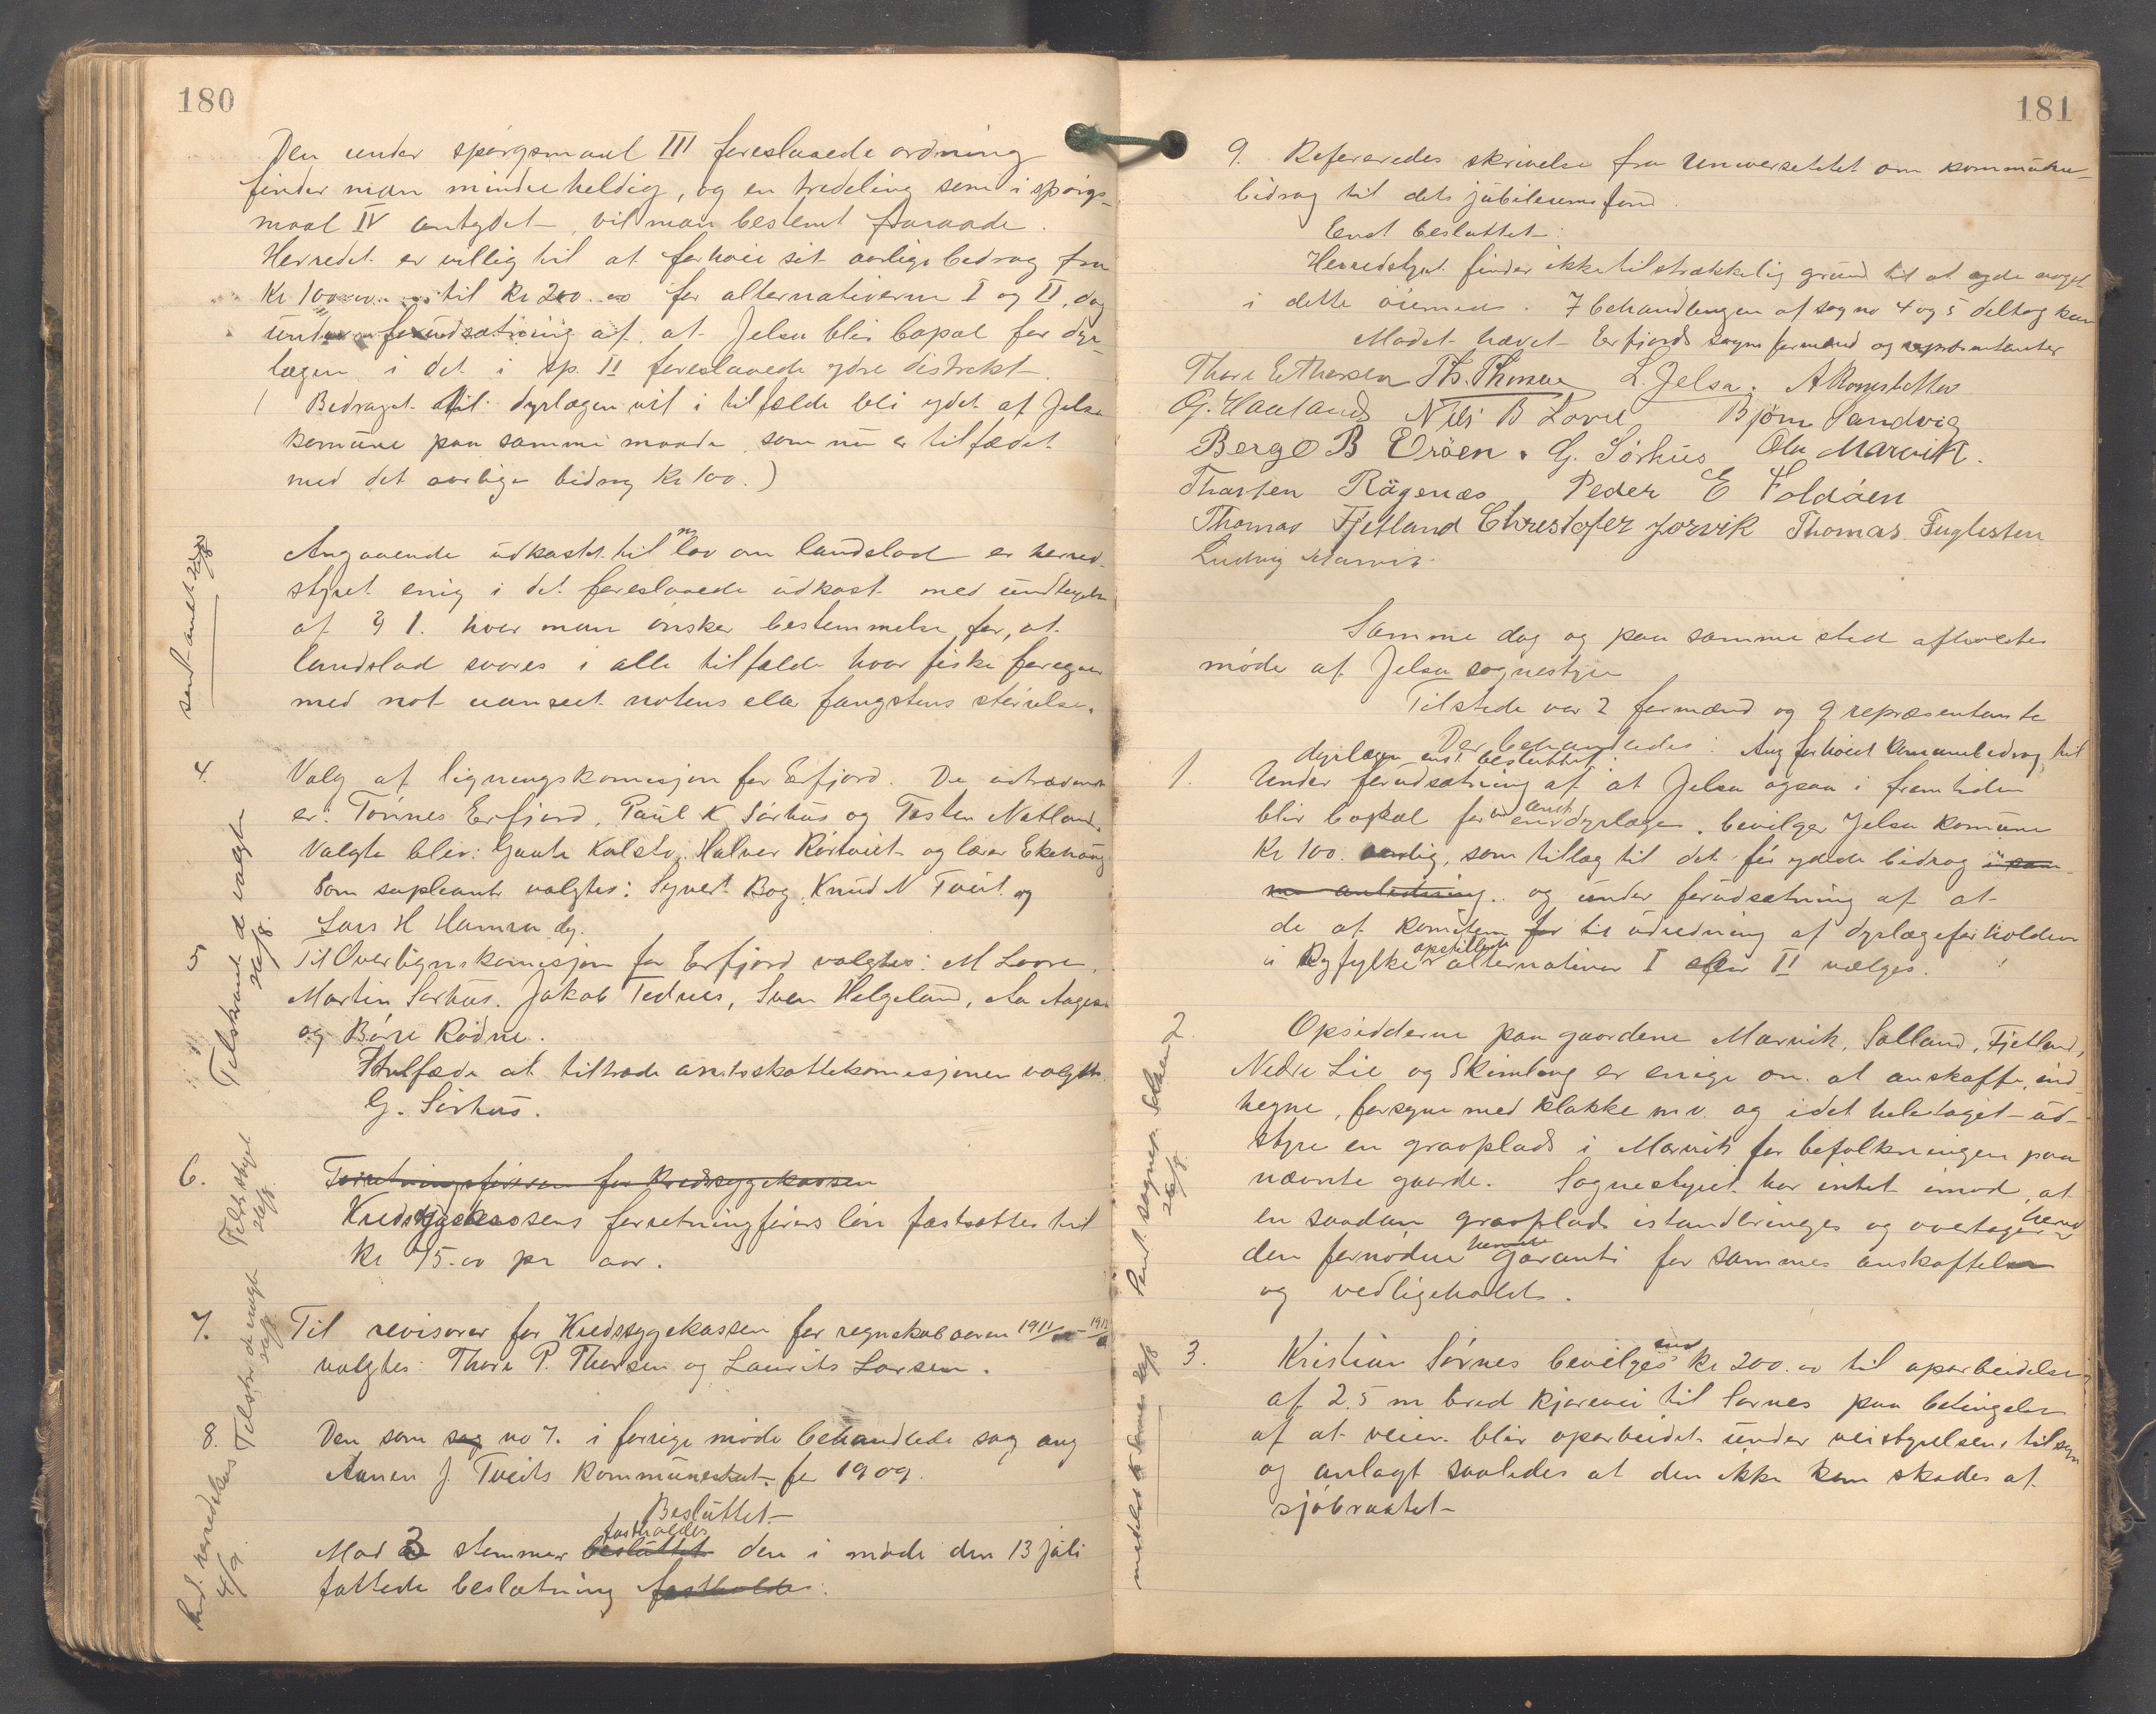 180
Den under spørgsmaal III foreslaaede ordning
finder man mindre heldig, og en tredeling som i spørgs-
maal IV antydet, vil man bestemt fraraade.
Herredet er villig til at forhøie sit aarlige bedrag fra
Kr 100.00 til Kr 200.00 for alternativerne I og II, dog
under forudsætning af at Jelsa blir bopæl for dyr-
lægen i det i sp. II foreslaaede ydre distrikt.
( Bedraget til dyrlægen vil i tilfælde bli ydet af Jelsa
komune paa samme maade som nu er tilfædet
med det aarlige bidrag Kr 100.)
Angaaende udkastet til lov om landslod er herred-
styret enig i det foreslaaede udkast med undtagelse
af § 1. hvor man ønsker bestemmelse for, at
landslod svares i alle tilfælde hvor fiske foregaar
med not uanseet notens eller fangstens størrelse.
4. Valg af ligningskomisjon for Erfjord. De udtrædende
er: Tønnes Erfjord, Paul K Sørhus og Tosten Natland.
Valgte blev: Gaute Kolstø, Halvor Rørtveit og lærer Ekehaug
Som supleanter valgtes: Syvert Bog, Knud N Tveit og
Lars H Hamra dy.
5 Til Overligniskomisjon for Erfjord valgtes: M Lovra,
Martin Sørhus, Jakob Tednes, Sven Helgeland, Aa Aagesen
og Børe Rødne.
at tiltræde amtsskattekomisjonen valgtes
G. Sørhus.
6. Forretningsføreren for Kredssygekassen
Kredssygekassens forretningførers løn fastsættes til
Kr 75.00 pr aar.
7. Til revisorer for Kredssygekassen for regnskabsaaren 1911 - 1912
valgtes: Thore P. Thorsen og Laurits Larsen.
8. Den som sag no 7. i forrige møde behandlede sag ang
Aanen J. Tveits kommuneskat for 1909.
Besluttet
fastholdes
Mod 3 stemmer besluttet den i møde den 13 juli
fattede beslutning fastholdes.
181
9. Refereredes skrivelse fra Universitetet om kommune-
bidrag til dets jubilæumsfond.
Enst besluttet:
Herredstyret finder ikke tilstrækkelig grund til at yde noget
i dette øiemed. I behandlingen af sag no 4 og 5 deltog kun
Mødet hævet Erfjords sogns formænd og repræsentanter
Thore Th. Thorsen L. Jelsa.
G. Haaland Nils B Lovra Bjørn Sandvig
Berge B Erøen. G. Sørhus Ola Marvik.
Thorsten Rägenæs Peder E Foldøen
Thomas Fjetland Christofer Jorvik Thomas Fuglesten
Ludvig Marvik
Samme dag og paa samme sted afholdtes
møde af Jelsa sognestyre
Tilstede var 2 formænd og 9 repræsentante
Der behandledes: Ang forhøiet Komunebedrag til
dyrlægen enst besluttet:
1. Under forudsætning af at Jelsa ogsaa i fremtiden
blir bopæl for en amtsdyrlæge, bevilger Jelsa komune
Kr 100. aarlig, som tillæg til det før ydede bidrag i sam-
me anledning. og under forudsætning af at
de af komiteen for til udredning af dyrlægeforholdene
i Ryfylke opstillede alternativer I eller II vælges.
2. Opsidderne paa gaardene Marvik, Solland, Fjetland,
Nedre Lie og Skimlong er enige om at anskaffe, ind-
hegne, forsyne med klokke m v. og i det heletaget ud-
styre en gravplads i Marvik for befolkningen paa
nævnte gaarde. Sognestyret har intet imod at
en saadan gravplads istandbringes og overtager herved
den fornødne garanti for sammes anskaffelse
og vedligehold.
3. Kristian Sørnes bevilges Kr 200.00 til oparbeidelse
af 2,5 m bred kjørevei til Sørnes paa betingelse
af at veien blir oparbeidet under veistyrelsens tilsyn
og anlagt saaledes at den ikke kan skades af
sjøbraattet